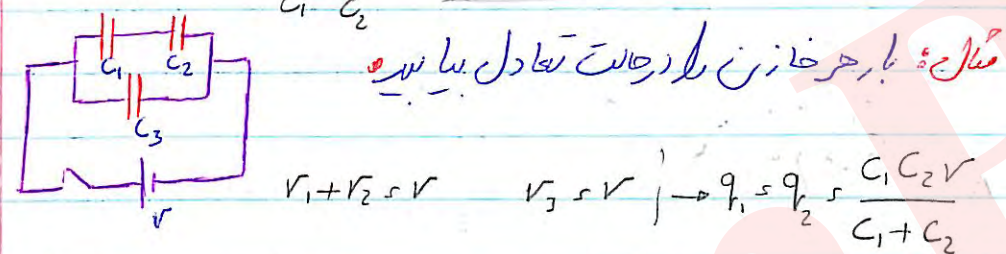 C₁ C₂
مثال: بار هر خازن را در حالت تعادل بیابید.
C₁ C₂
C₃
V
V₁+V₂ = V V₃ = V → q₁ = q₂ = C₁C₂V / C₁+C₂